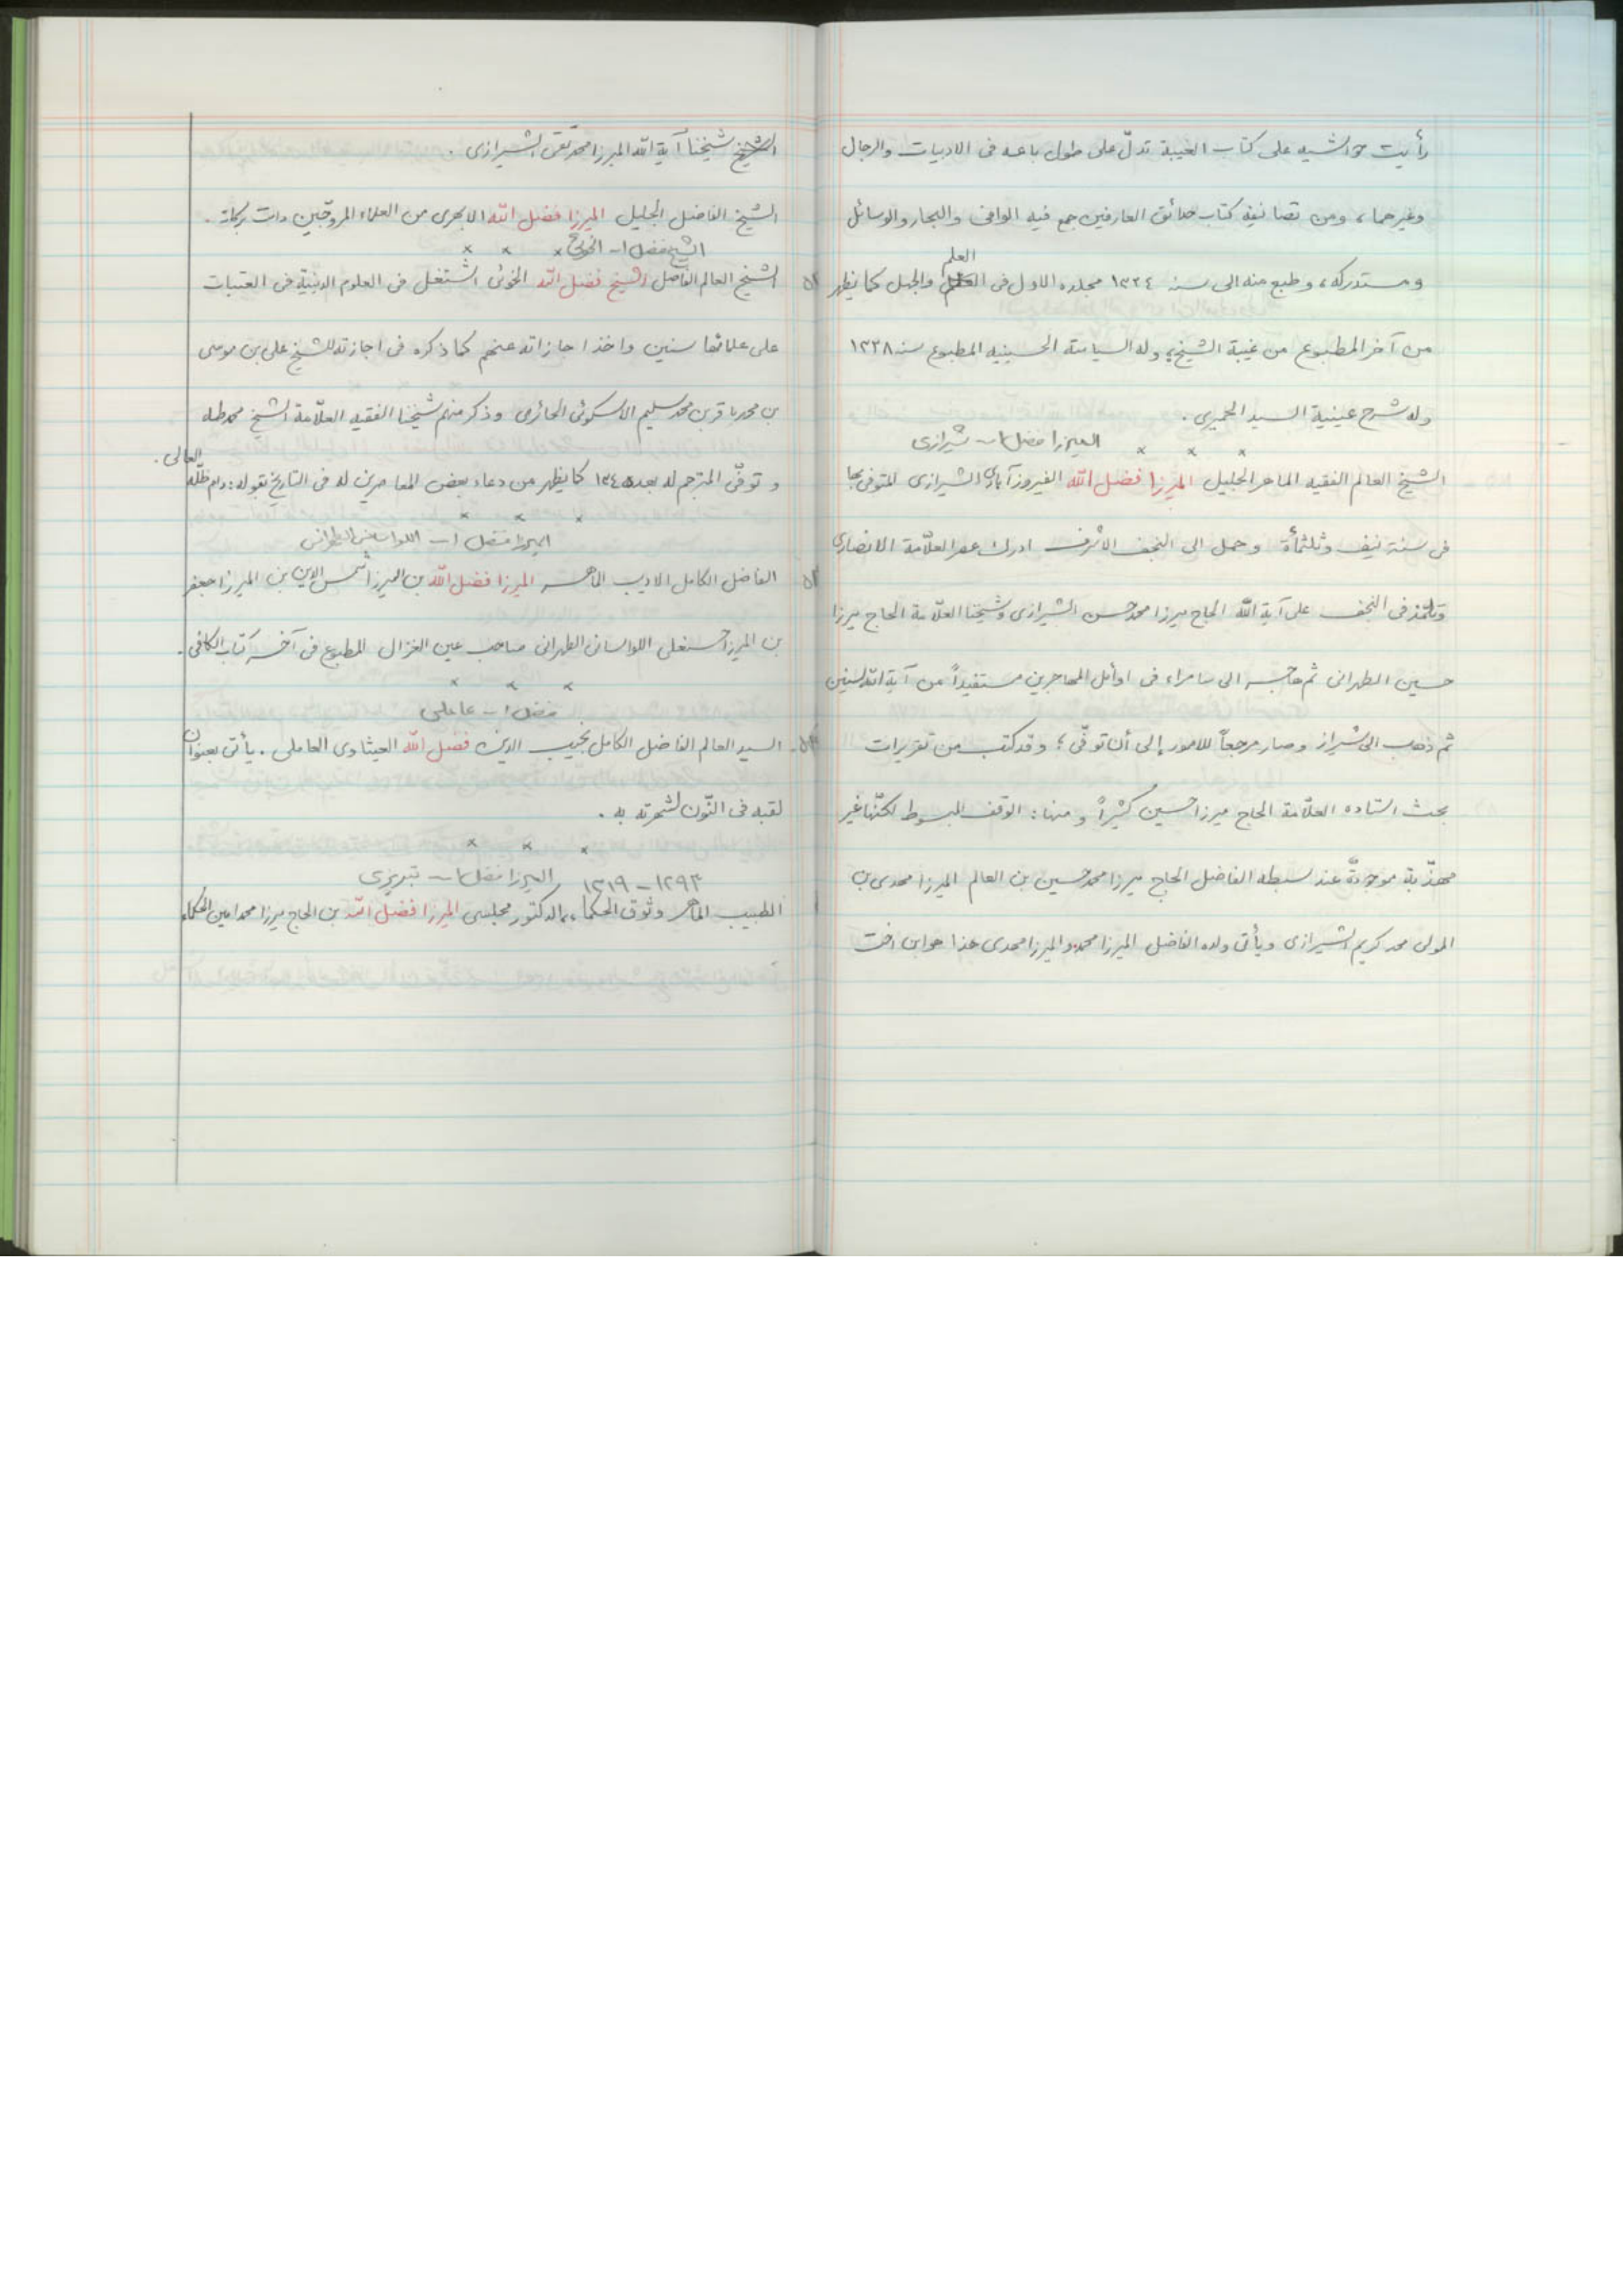 رأيت حواشيه على كتاب الغيبة تدلّ على طول باعه فى الادبيات والرجال
وغيرهما، ومن تصانيفه كتاب حدائق العارفين جمع فيه الوافى والبحار والوسائل
العلم
ومستدركه، وطبع منه الى سنة ١٣٢٤ مجلده الاول فى العلم والجهل كما يظهر
من آخر المطبوع من غيبة الشيخ، وله السياسة الحسينيه المطبوع سنه ١٣٢٨
وله شرح عينية السيد الحميرى.
الميرزا فضل ا... شيرازى × × ×
الشيخ العالم الفقيه الماهر الجليل الميرزا فضل الله الفيروزآبادى الشيرازى المتوفى بها
فى سنة نيف وثلثمأة وحمل الى النجف الاشرف ادرك عصر العلّامة الانصارى
وتلمّذ فى النجف على آية الله الحاج ميرزا محمد حسن الشيرازى وشيخنا العلّامة الحاج ميرزا
حسين الطهرانى ثم هاجر الى سامراء فى اوائل المهاجرين مستفيداً من آية الله سنين
ثم ذهب الى شيراز وصار مرجعاً للامور إلى أن توفّى؛ وقد كتب من تقريرات
بحث استاده العلّامة الحاج ميرزا حسين كثيراً ومنها: الوقف المبسوط لكنّها غير
مهذّبة موجودة عند سبطه الفاضل الحاج ميرزا محمد حسين بن العالم الميرزا محمدى بن
المولى محمد كريم الشيرازى ويأتى ولده الفاضل الميرزا محمد والميرزا محمدى هذا هو ابن اخت
شيخنا آية الله الميرزا محمد تقى الشيرازى.
الشيخ الفاضل الجليل الميرزا فضل الله الابهرى من العلماء المروّجين دامت بركاته.
الشيخ فضل ا... الخوئى × × ×
الشيخ العالم الفاضل الشيخ فضل الله الخوئى اشتغل فى العلوم الدينيّة فى العتبات
على علمائها سنين واخذ اجازاته عنهم كما ذكره فى اجازته للشيخ على بن موسى
بن محمد باقر بن محمد سليم الاسكوئى الحائرى وذكر منهم شيخنا الفقيه العلّامة الشيخ محمد طه
وتوفّى المترجم له بعد ١٣٤٥ كما يظهر من دعاء بعض المعاصرين له فى التاريخ بقوله: دام ظلّه العالى.
× × ×
الميرزا فضل ا... اللواسانى الطهرانى
الفاضل الكامل الاديب الماهر الميرزا فضل الله بن الميرزا شمس الدين بن الميرزا جعفر
بن الميرزا حسنعلى اللواسانى الطهرانى صاحب عين الغزال المطبوع فى آخر كتاب الكافى.
× × ×
فضل ا... عاملى
السيد العالم الفاضل الكامل نجيب الدين فضل الله العيثاوى العاملى. يأتى بعنوان
لقبه فى النّون لشهرته به.
× × ×
الميرزا فضل ا... تبريزى ١٢٩٣ - ١٣١٩
الطبيب الماهر وثوق الحكماء، الدكتور مجلسى الميرزا فضل الله بن الحاج ميرزا محمد امين الحكماء